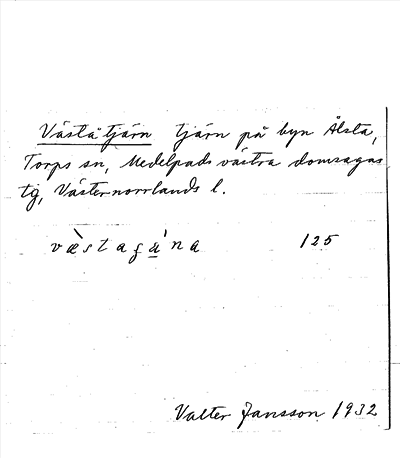 Väståtjärn tjärn på byn Ålsta,
Torps sn, Medelpads västra domsagas
tg, Västernorrlands l.
væ̀stagá̱na 125
Valter Jansson 1932